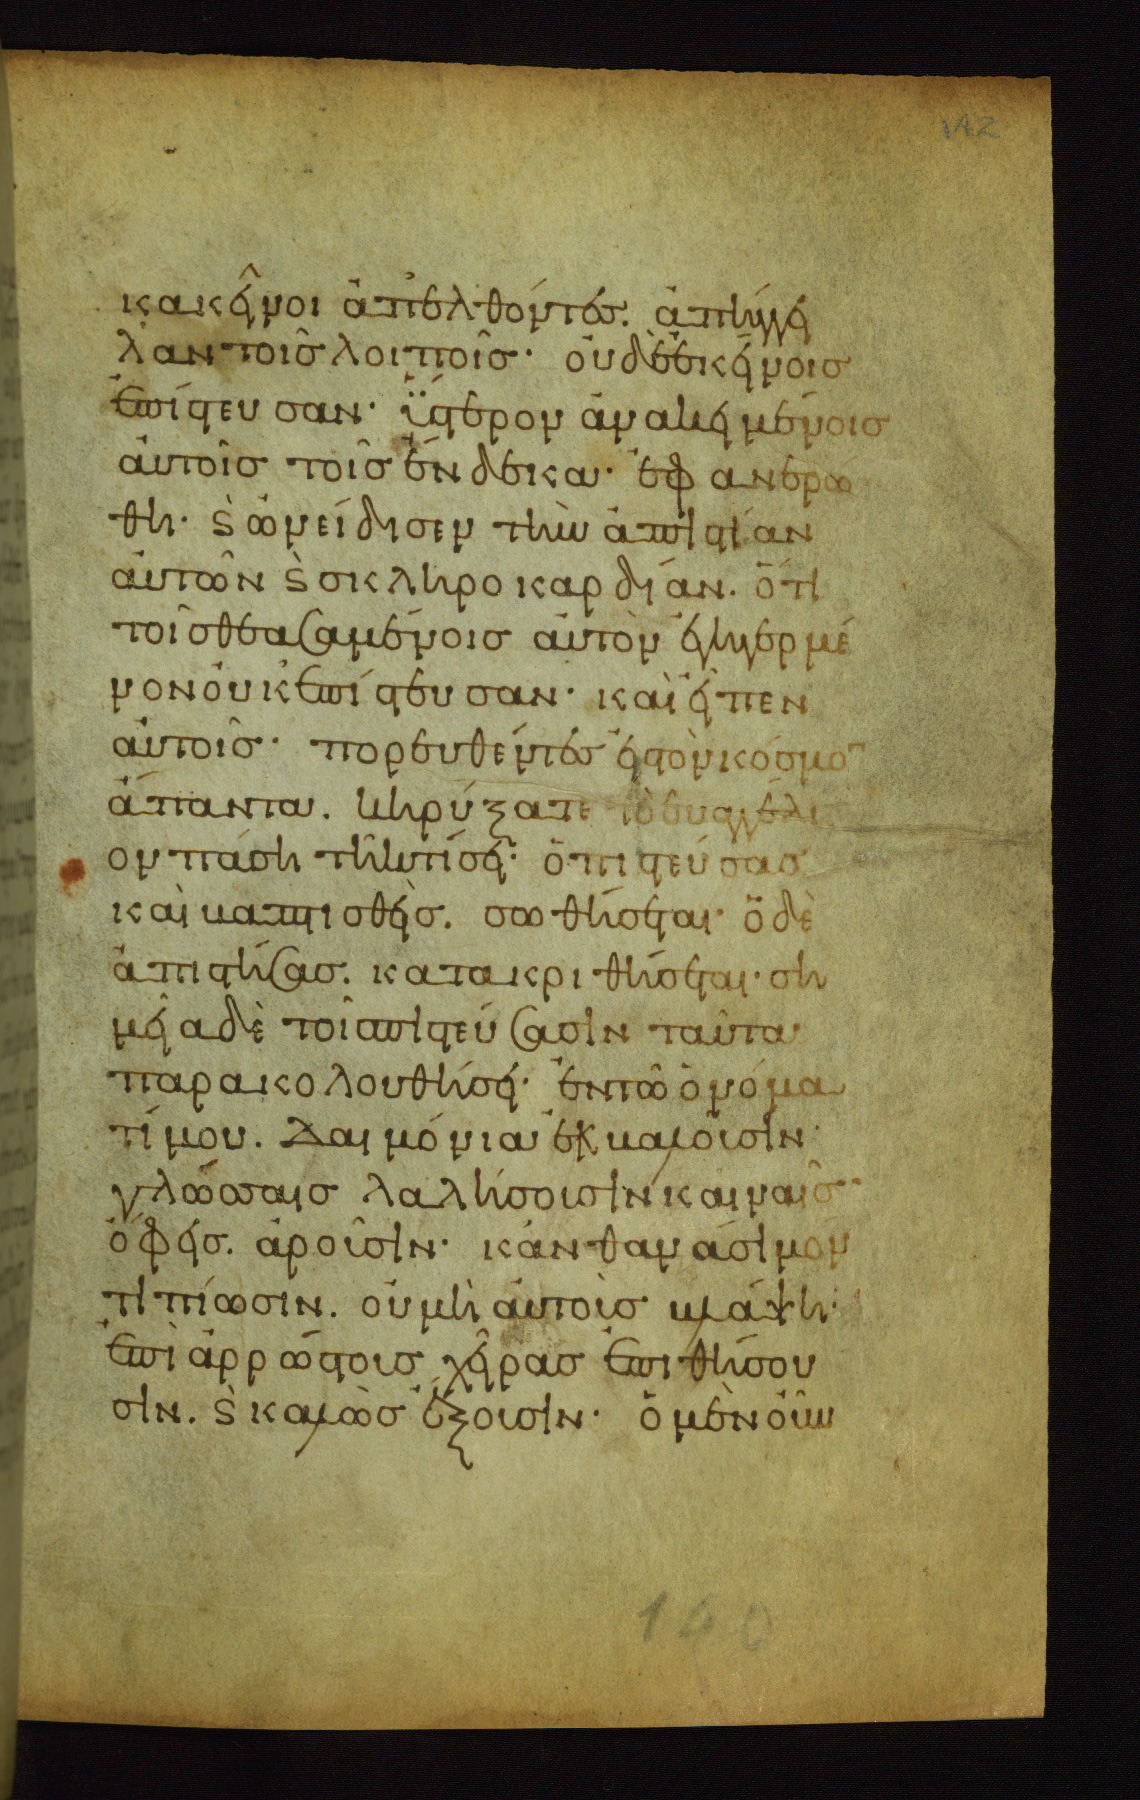 142
κακεῖνοι ἀπελθόντες. ἀπήγγει
λαν τοῖς λοιποῖς· οὐδὲ ἐκείνοις
ἐπίστευσαν· ὕστερον ἀνακειμένοις
αὐτοῖς τοῖς ἕνδεκα· ἐφανερώ
θη· ϗ ὠνείδησεν τὴν ἀπιστίαν
αὐτῶν ϗ σκληροκαρδίαν. ὅτι
τοῖς θεασαμένοις αὐτὸν ἐγηγερμέ
νον οὐκ ἐπίστευσαν· καὶ εἶπεν
αὐτοῖς· πορευθέντες εἰς τὸν κόσμο
ἅπαντα. κηρύξατε τὸ εὐαγγέλι
ον πάση τῆ κτίσει· ὁ πιστεύσας
καὶ βαπτισθεὶς. σωθήσεται· ὁ δὲ
ἀπιστήσας. κατακριθήσεται· ση
μεῖα δὲ τοῖς πιστεύσασιν ταῦτα
παρακολουθήσει· ἐν τῶ ὀνόμα
τί μου. δαιμόνια ἐκβαλοῦσιν·
γλώσσαις λαλήσουσιν καιναῖς·
ὄφεις. ἀροῦσιν· κἂν θανάσιμόν
τι πίωσιν. οὐ μὴ αὐτοὺς βλάψη·
ἐπὶ ἀρρώστοις χεῖρας ἐπιθήσου
σιν. ϗ καλῶς ἕξουσιν· ὁ μὲν οὖν
140